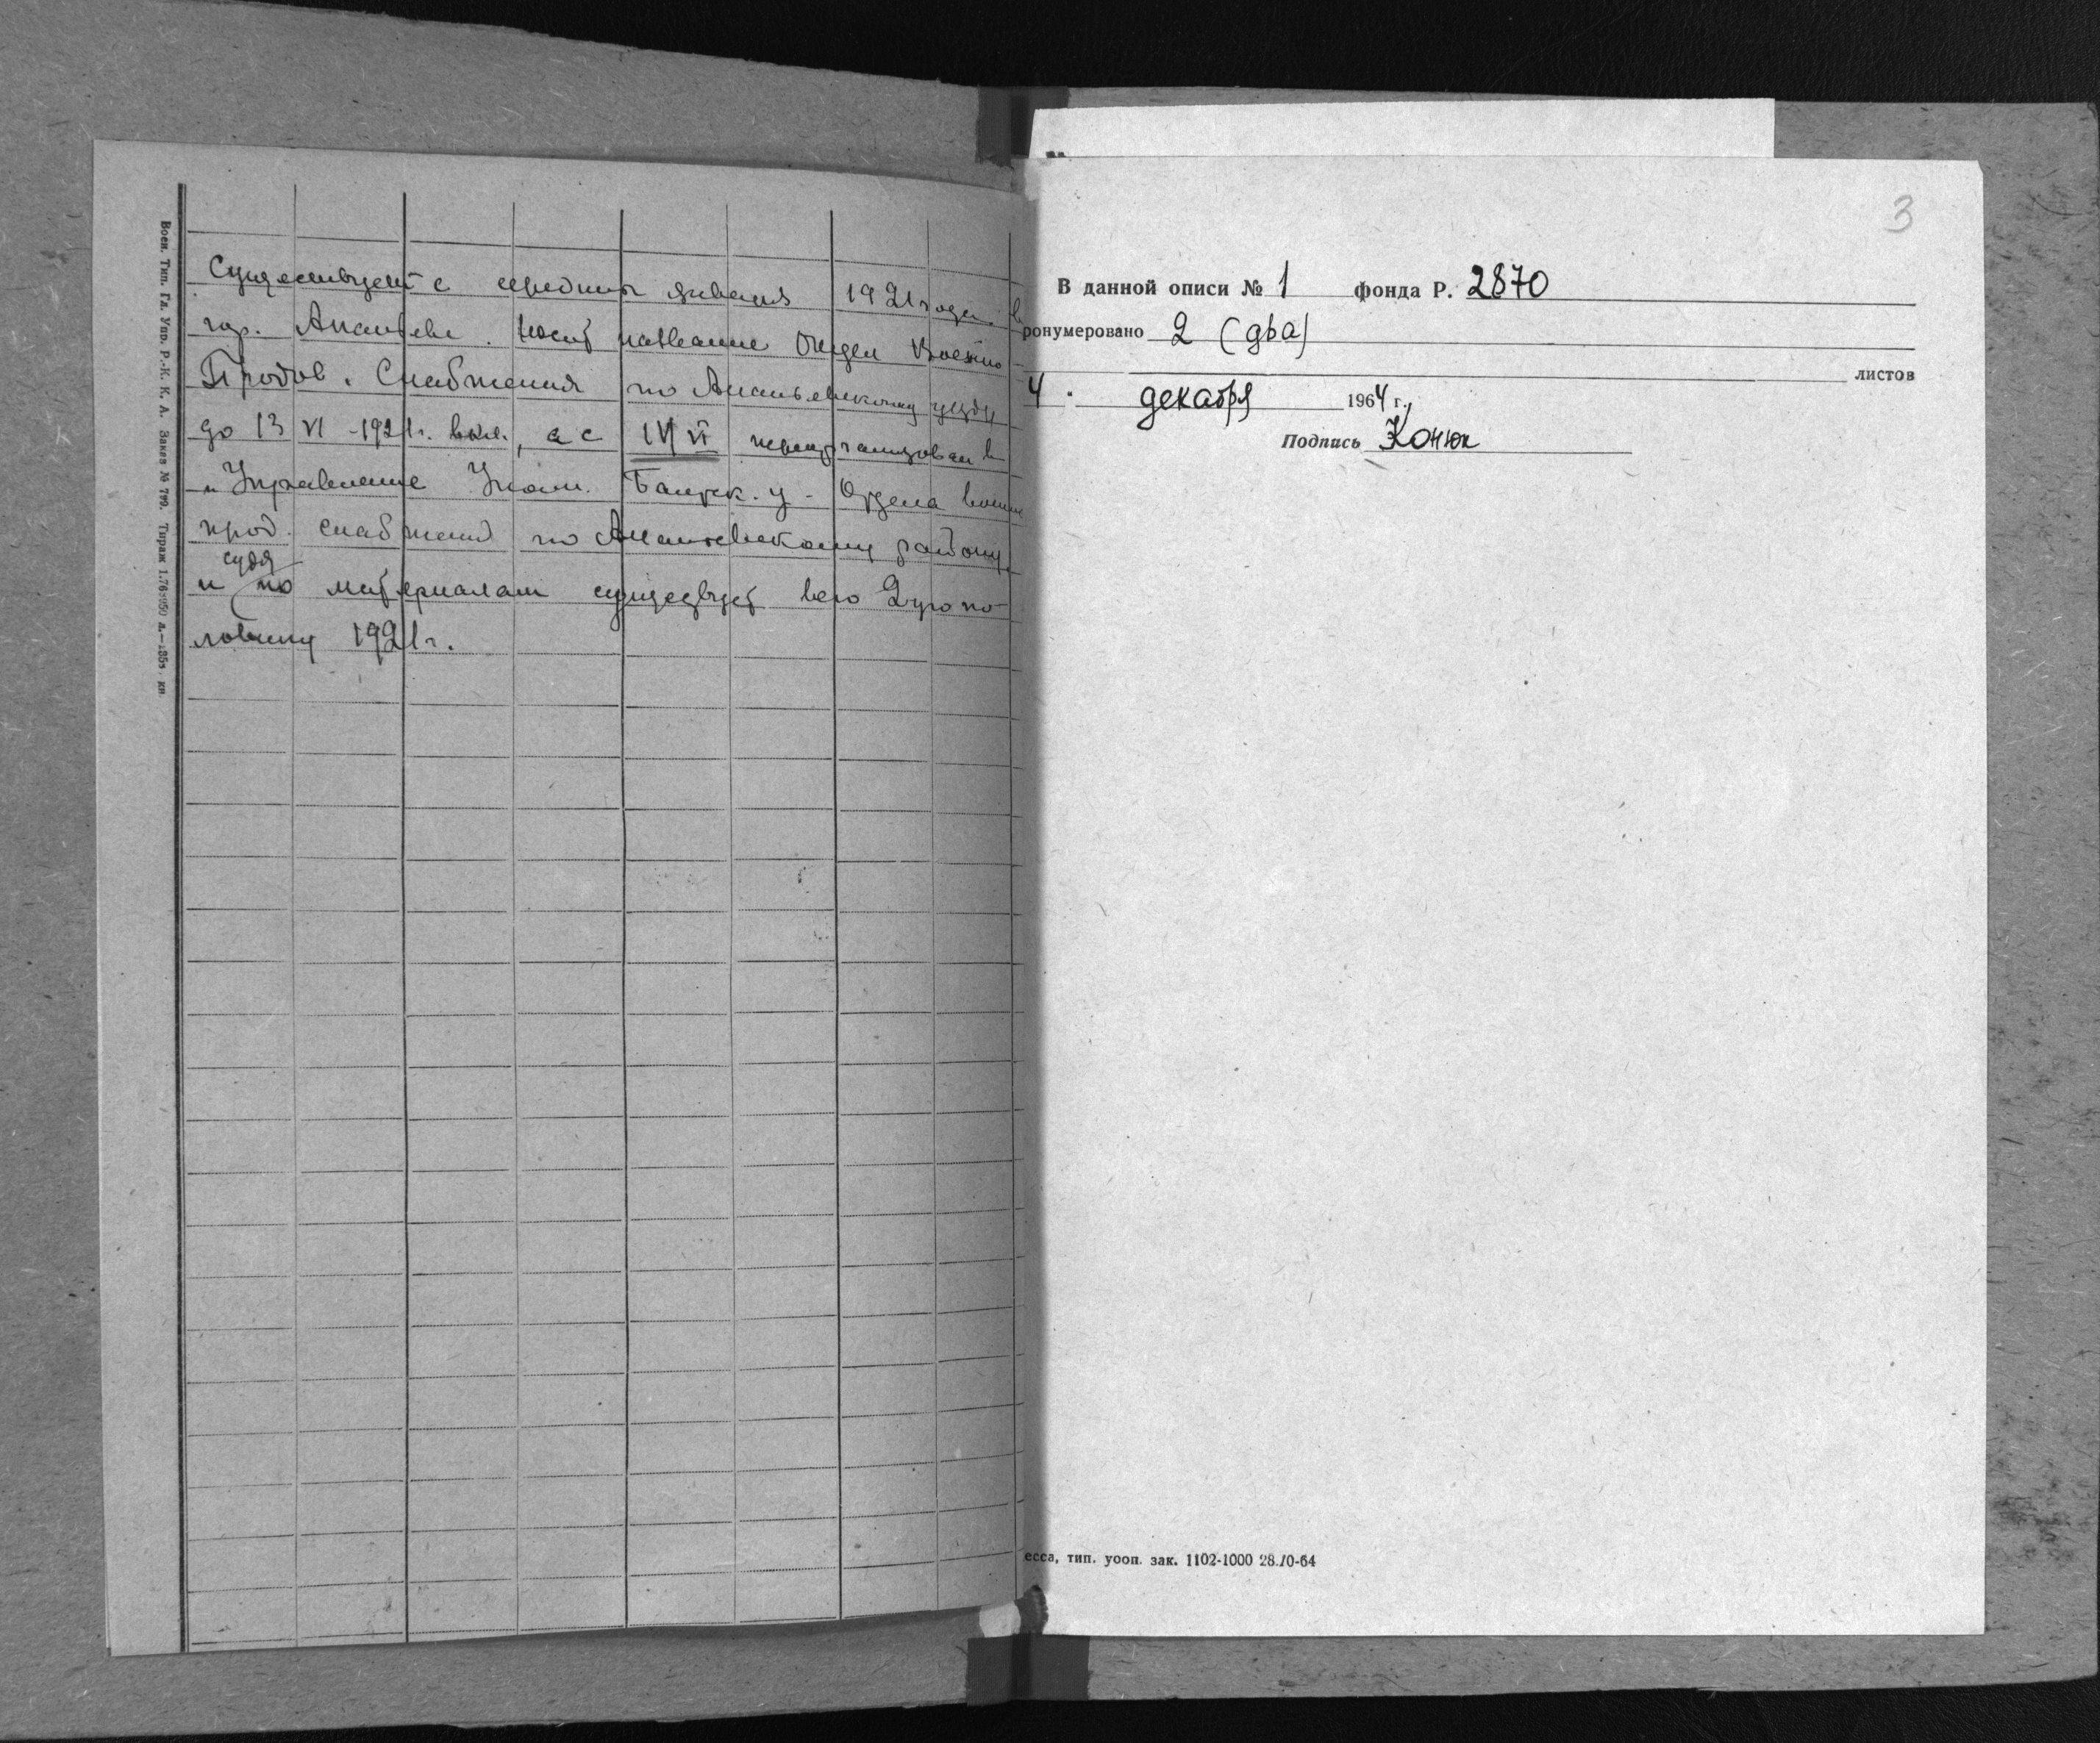 Существует с середины января 1921 года в
гор. Ананьеве. Носит название Отдел Военно
Продов. Снабжения по Ананьевскому уезду
до 13 VI - 1921г. вкл., а с 14 VI реорганизован в
"Управление Уполн. Балтск. у - Отдела военн
прод. снабжения по Ананьевскому району,
судя
и по материалам существует всю 2ую по-
ловину 1921г.
Воен. Тип. Гл. Упр. Р.-К. К. А. Заказ № 799. Тираж
3
В данной описи № 1 фонда Р. 2870
ронумеровано 2 (два)
листов
4. декабря 1964 г.
Подпись Конюк
есса, тип. уооп. зак. 1102-1000 28.10-64